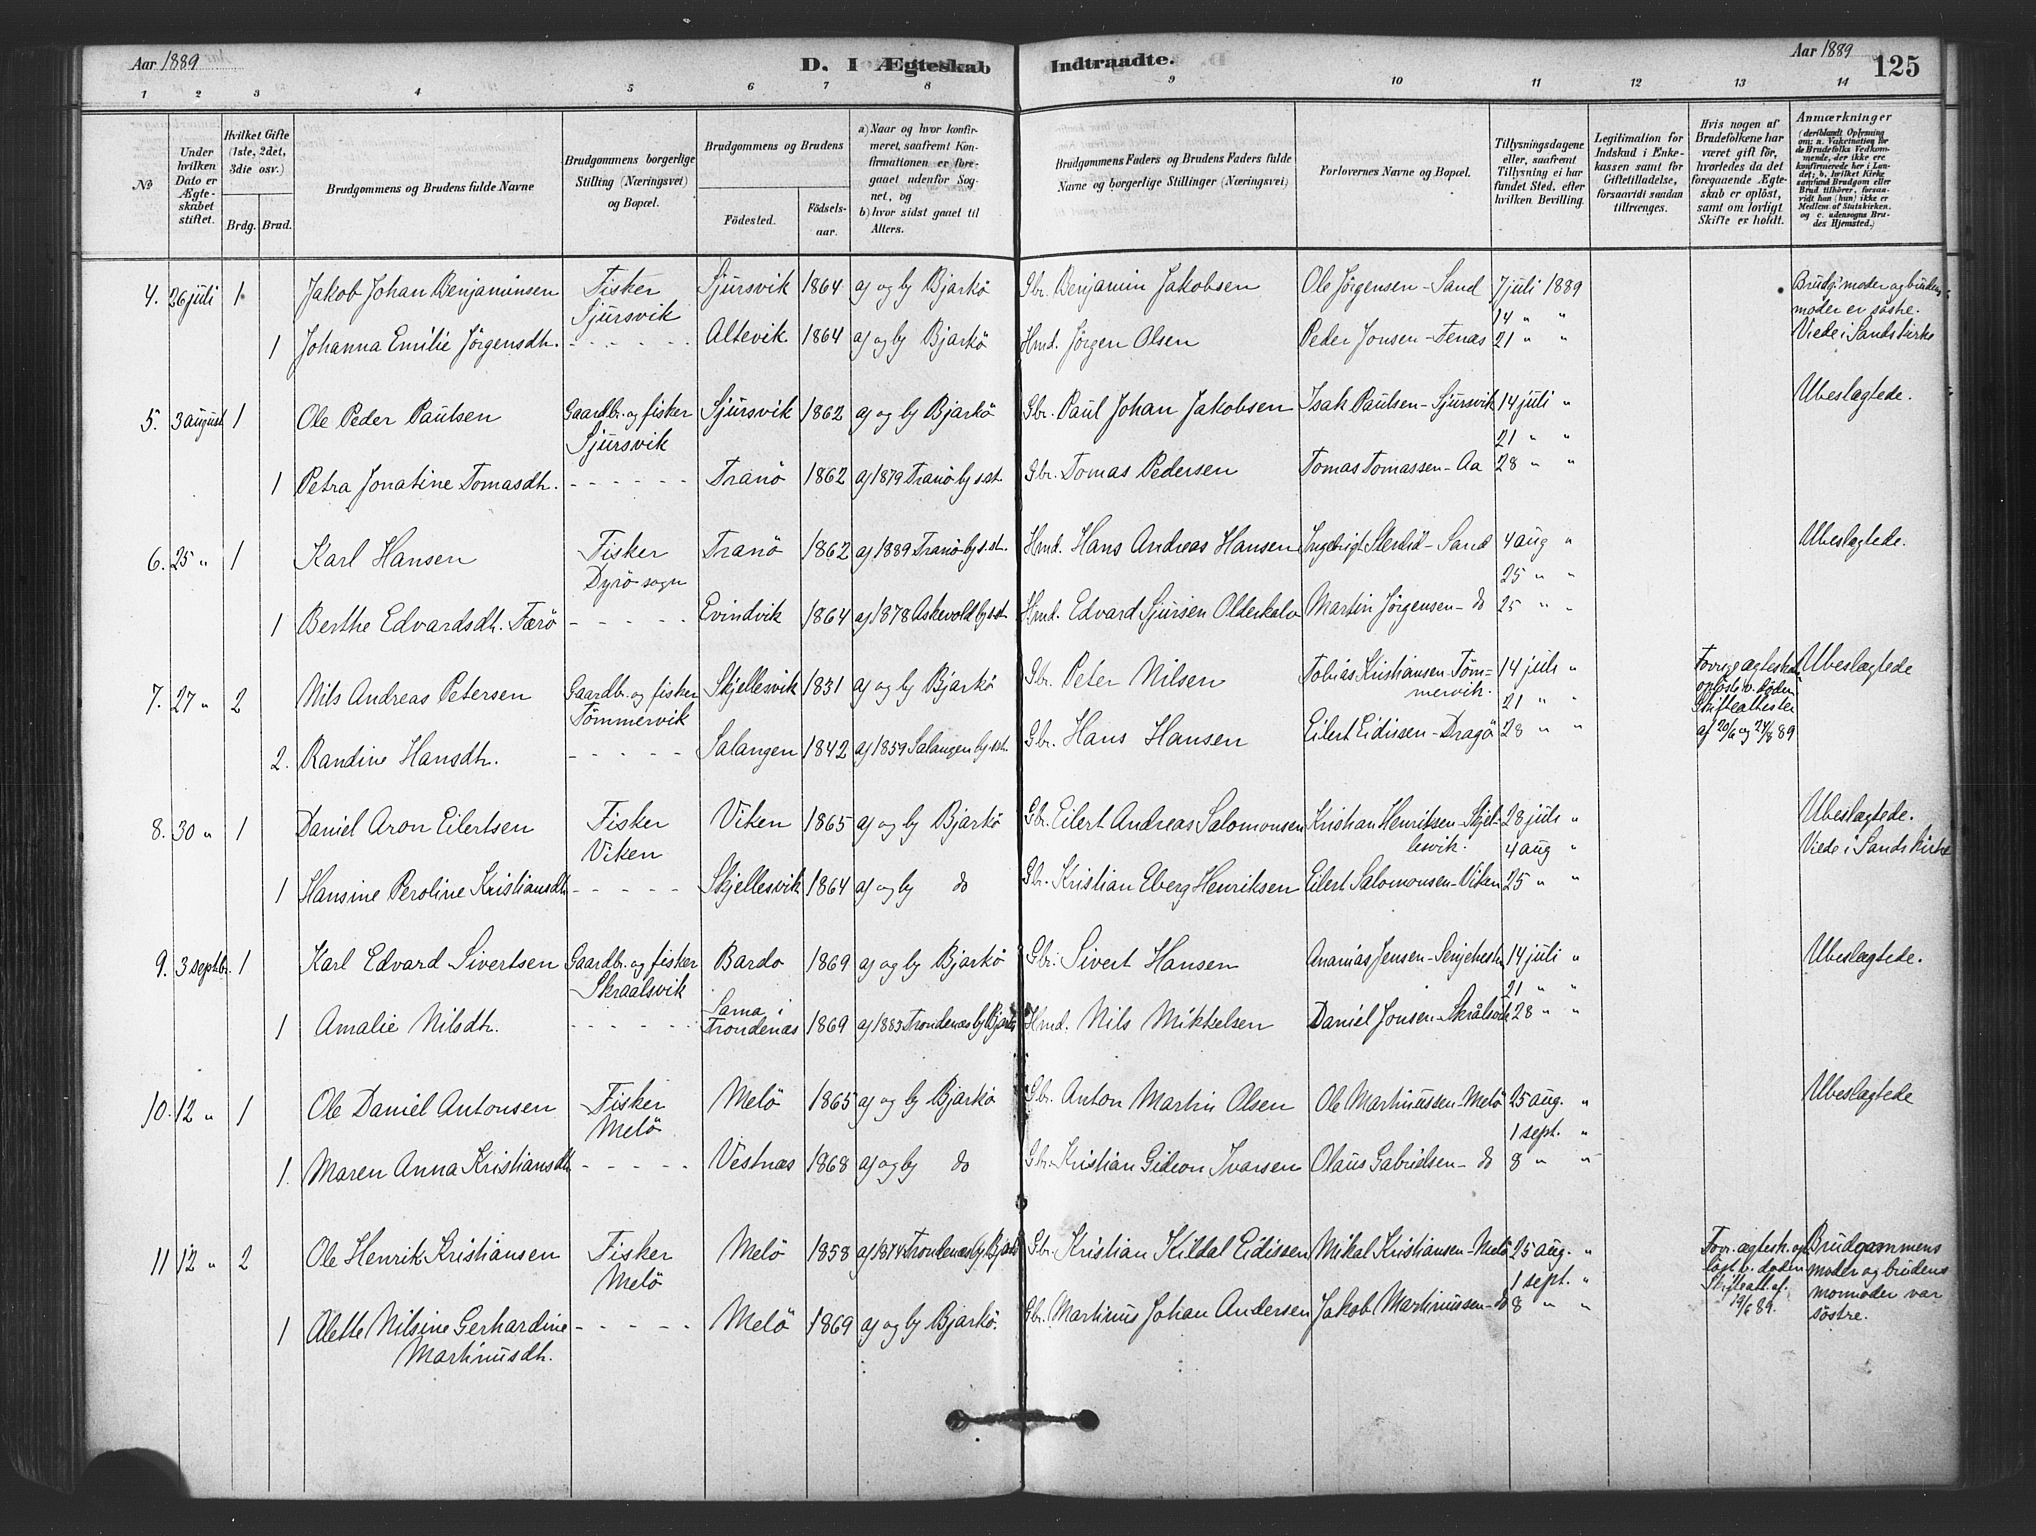 Aar 1889 D. I Ægteskab Indtraadte. Aar 1889 125
1 2 3 4 5 6 7 8 9 10 11 12 13 14
No
Under hvilken Dato er Ægteskabet stiftet.
Hvilket Gifte (1ste, 2det, 3die osv.)
Brdg. Brud.
Brudgommens og Brudens fulde Navne
Brudgommens borgerlige Stilling (Næringsvei) og Bopæl.
Brudgommens og Brudens
Födested. Födselsaar.
a) Naar og hvor konfirmeret, saafremt Konfirmationen er foregaaet udenfor Sognet, og
b) hvor sidst gaaet til Alters.
Brudgommens Faders og Brudens Faders fulde Navne og borgerlige Stillinger (Næringsvei)
Forlovernes Navne og Bopæl.
Tillysningsdagene eller, saafremt Tillysning ei har fundet Sted, efter hvilken Bevilling.
Legitimation for Indskud i Enkekassen samt for Giftetilladelse, forsaavidt saadan tiltrænges.
Hvis nogen af Brudefolkene har været gift för, hvorledes da det foregaaende Ægteskab er oplöst, samt om lovligt Skifte er holdt.
Anmærkninger
(deriblandt Oplysning om: a. Vakcination for de Brudefolks Vedkommende, der ikke ere konfirmerede her i Landet; b. hvilket Kirkesamfund Brudgom eller Brud tilhörer, forsaavidt han (hun) ikke er Medlem af Statskirken, og c. udensogns Brudes Hjemsted.)
4. 26 juli 1 Jakob Johan Benjaminsen Fisker Sjursvik 1864 a) og b) Bjarkö Gbr. Benjamin Jakobsen Ole Jörgensen - Sand 7 juli 1889 Brudg. moder og brudens
Sjursvik 14 " " moder er søstre.
1 Johanna Emilie Jörgensdtr. - - - - - - Altevik 1864 a) og b) Bjarkö Hmd. Jörgen Olsen Peder Jonsen - Tenas 21 " " Viede i Sands kirke
5. 3 august 1 Ole Peder Paulsen Gaardbr. og fisker Sjursvik 1862 a) og b) Bjarkö Gbr. Paul Johan Jakobsen Isak Paulsen - Sjursvik 14 juli " Ubeslægtede.
Sjursvik 21 " "
1 Petra Jonatine Tomasdtr. - - - - - - Tranö 1862 a) 1879 Tranö b) s. st. Gbr. Tomas Pedersen Tomas Tomassen - Aa 28 " "
6. 25 " 1 Karl Hansen Fisker Tranö 1862 a) 1889 Tranö b) s. st. Hmd. Hans Andreas Hansen Ingebrigt - Sand 4 aug " Ubeslægtede.
Dyrö sogn 25 " "
1 Berthe Edvardsdtr. Færö - - - - - Evindvik 1864 a) 1878 Askevold b) s. st. Hmd. Edvard Sjursen Olderkalv Martin Jörgensen - do 25 " "
7. 27 " 2 Nils Andreas Petersen Gaardbr. og fisker Skjellesvik 1831 a) og b) Bjarkö Gbr. Peter Nilsen Tobias Kristiansen - Töm- 14 juli " Forrige ægteskab Ubeslægtede
Tömmervik mervik. 21 " " opløst v. döden
2. Randine Hansdtr. - - - - - Salangen 1842 a) 1859 Salangen b) s. st. Gbr. Hans Hansen Eilert Eidissen - Dragö 28 " " Skifteattester
af 20/6 og 24/8 89
8. 30 " 1 Daniel Aron Eilertsen Fisker Viken 1865 a) og b) Bjarkö Gbr. Eilert Andreas Salomonsen Kristian Henriksen - Skjel- 28 juli " Ubeslægtede.
Viken lesvik. 4 aug " Viede i Sands kirke
1 Hansine Peroline Kristiansdtr. - - - - - Skjellesvik 1864 a) og b) do Gbr. Kristian Eberg Henriksen Eilert Salomonsen - Viken 25 " "
9. 3 septbr. 1 Karl Edvard Sivertsen Gaardbr. og fisker Bardo 1869 a) og b) Bjarkö Gbr. Sivert Hansen Ananias Jensen - Senjehesten 14 juli " Ubeslægtede.
Skraalsvik Sama i 21 " "
1 Amalie Nilsdtr. - - - - - - Trondenæs 1869 a) 1883 Trondenæs b) Bjarkö Hmd. Nils Mikkelsen Daniel Jonsen - Skrålsvik 28 " "
10. 12 " 1 Ole Daniel Antonsen Fisker Melö 1865 a) og b) Bjarkö Gbr. Anton Martin Olsen Ole Martinussen - Melö 25 aug. " Ubeslægtede
Melö 1 sept. "
1. Maren Anna Kristiansdtr. - - - - - Vestnæs 1868 a) og b) do Gbr. Kristian Gideon Ivarsen Olaus Gabrielsen - do 8 " "
11 12 " 2 Ole Henrik Kristiansen Fisker Melö 1858 a) 1874 Trondenæs b) Bjarkö Gbr. Kristian Kildal Eidissen Mikal Kristiansen - Melö 25 aug. " Forr. ægtesk. op- Brudgommens
Melö 1 sept. " löst v. döden moder og brudens
1 Alette Nilsine Gerhardine - - - - - Melö 1869 a) og b) Bjarkö. Gbr. Martinus Johan Andersen Jakob Martinussen - do 8 " " Skifteatt. af mormoder var
Martinusdtr. 19/6 89. söstre.